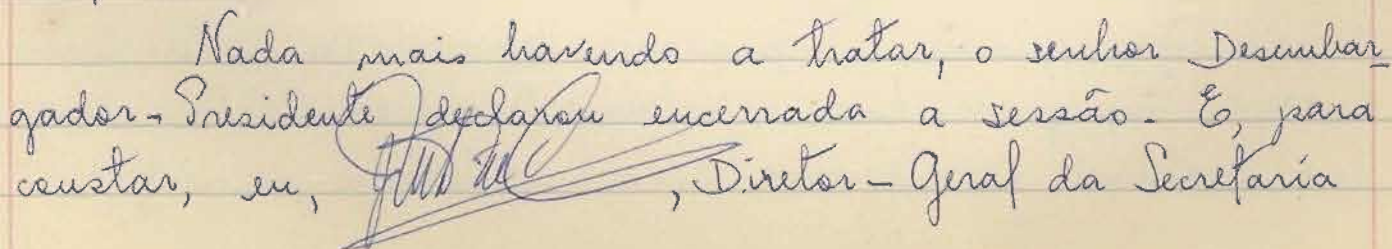 Nada mais havendo a tratar, o senhor Desembar-
gador-Presidente declarou encerrada a sessão. E, para
constar, eu, , Diretor-Geral da Secretaria